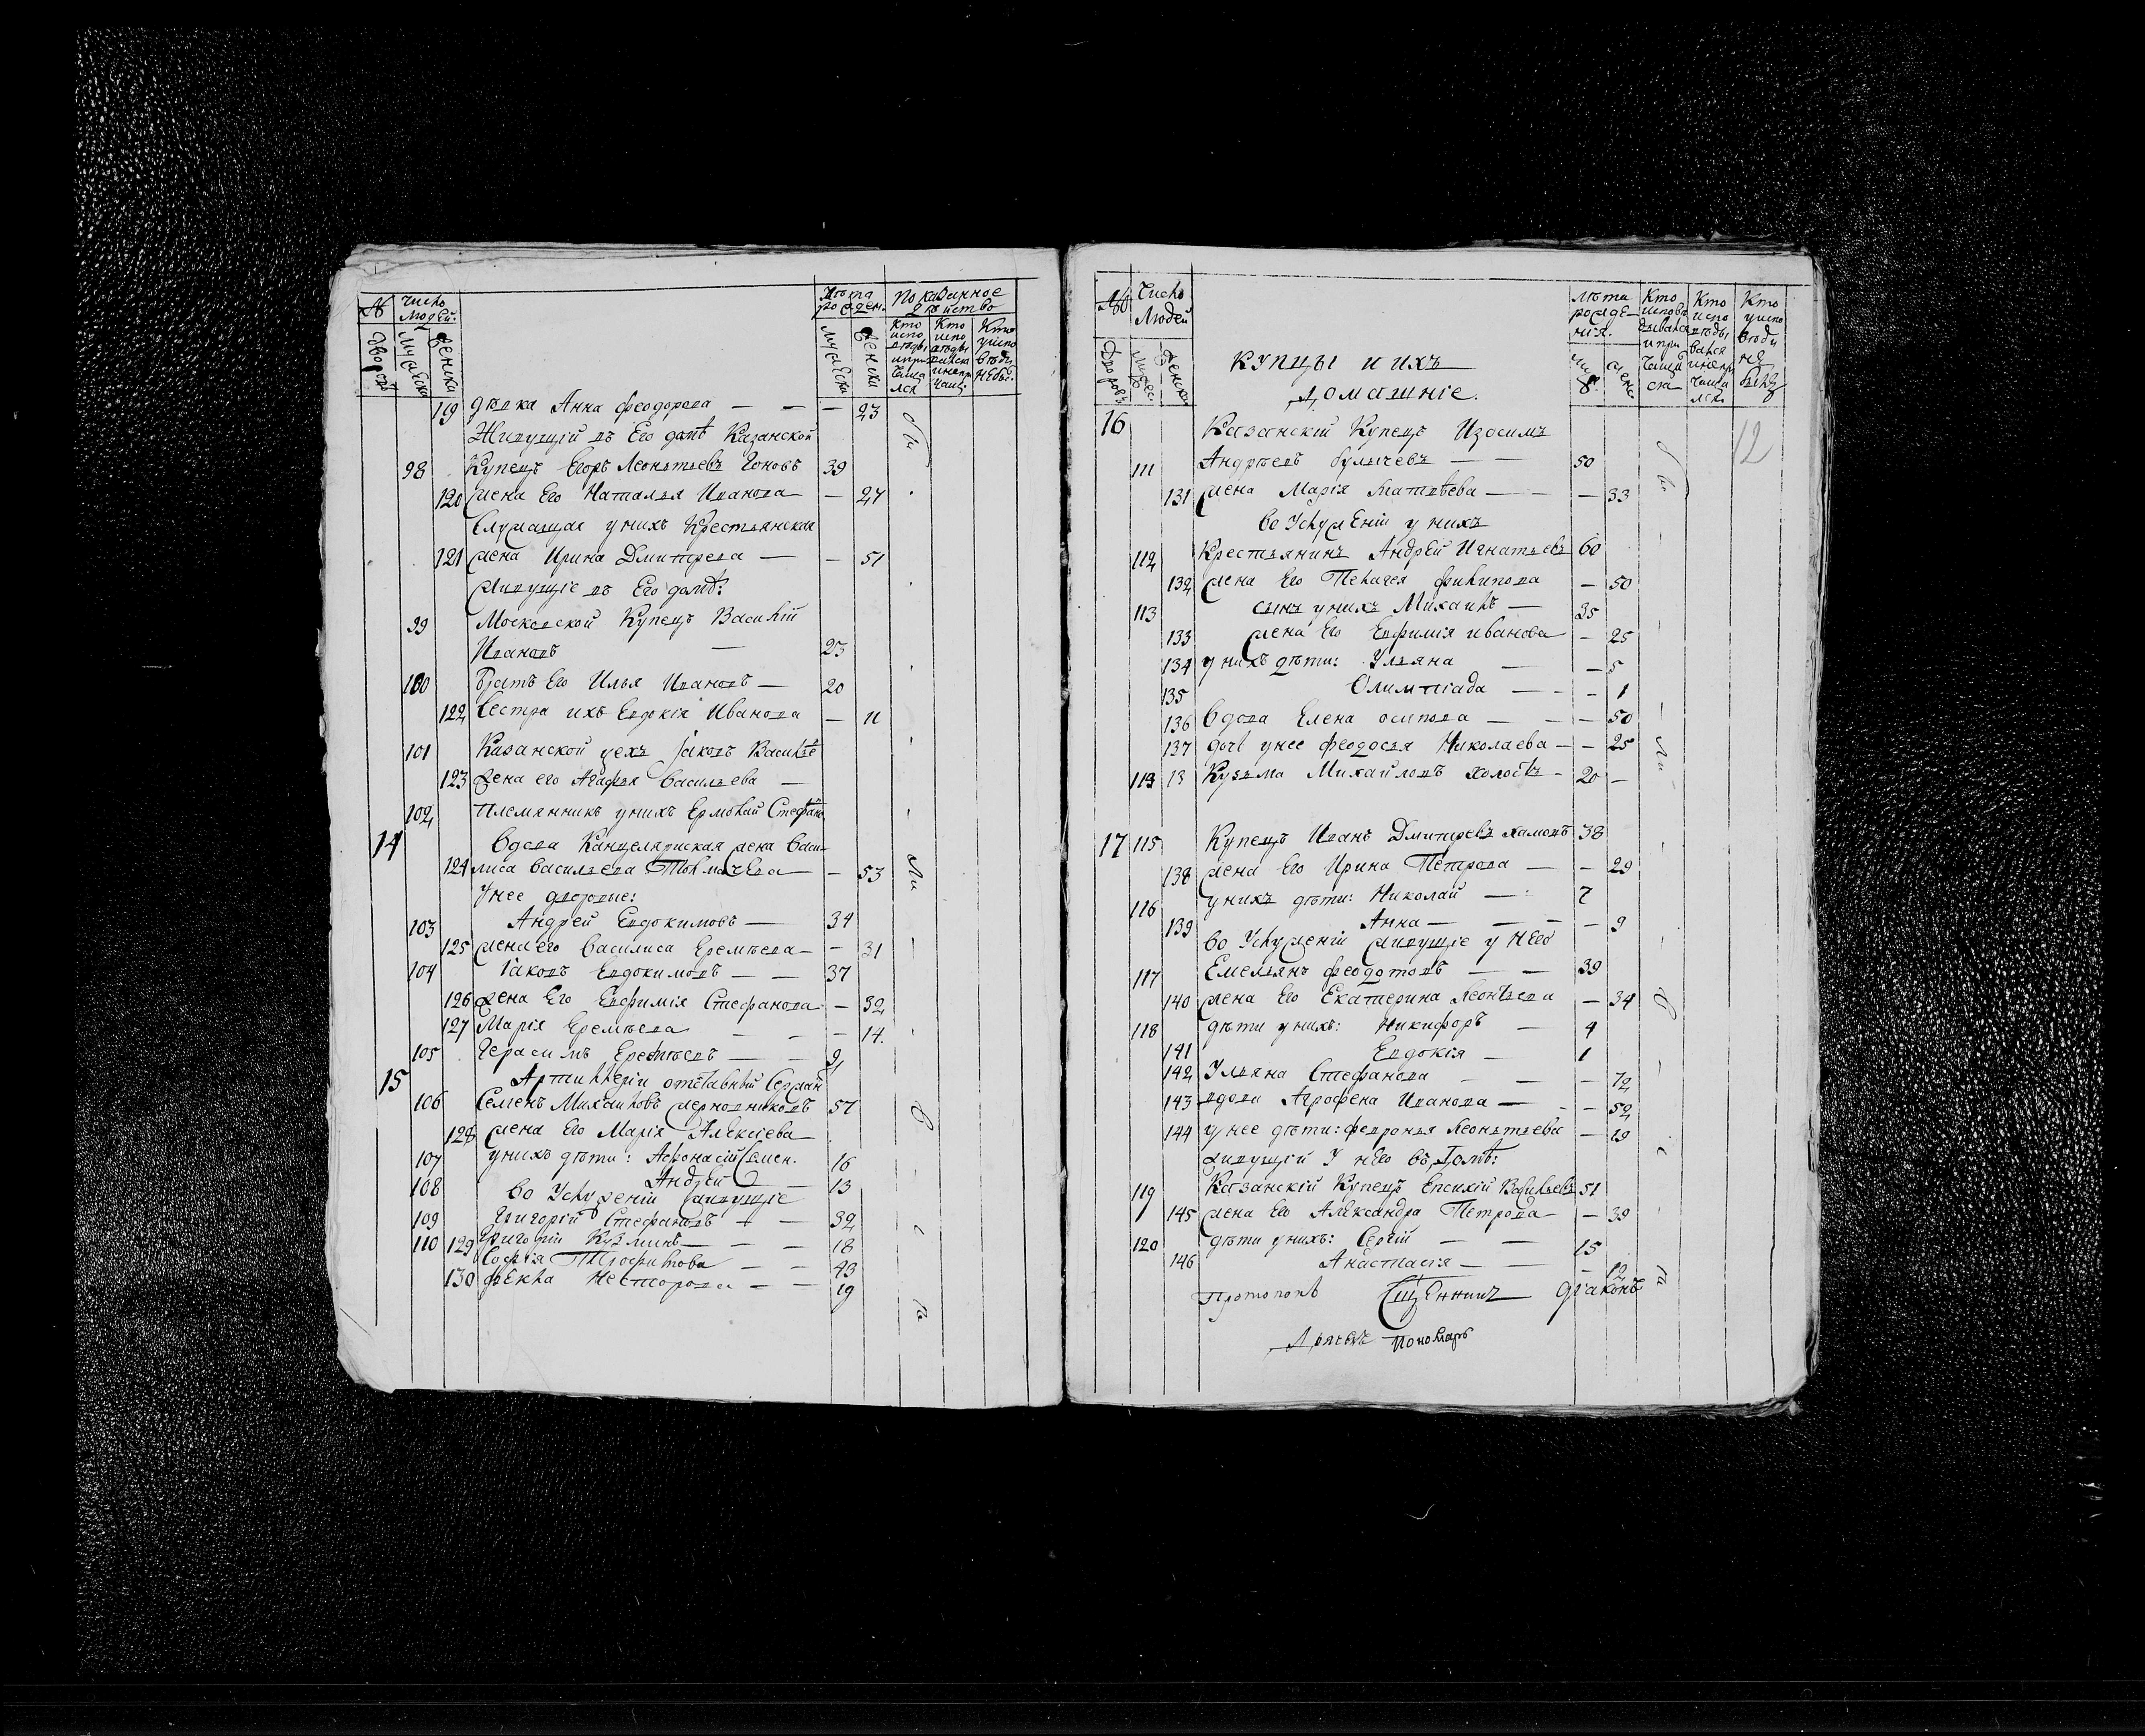 № Число Людей. Лѣта рожден. Показанное Дѣйство
Дворовъ Мужеска Женска Мужеска Женска Кто исповѣды и прича лся Кто исповѣды вался и непричащ. Кто у исповѣди небы.
119 дѣвка Анна Феодорова — — — 23
Живущій въ Его домѣ Казанской
98 Купецъ Егоръ Леонтьевъ 39
120 жена Его Наталья Иванова — — 27
Служащая у нихъ Крестьянская
121 жена Ирина Дмитрева — — 51
Живущіе въ Его домѣ:
99 Московской Купецъ Василій
Ивановъ — 23
100 Братъ Его Илья Ивановъ — 20
122 Сестра ихъ Евдокія Иванова — 11
101 Казанской цехъ Іаковъ Василье
123 жена его Агафья Васильева —
102 племянникъ у нихъ Ермолай Стефан
14 Вдова Канцелярская жена Васи
124 лиса Васильева Толмачева — — 53
У нее дворовые:
103 Андрей Евдокимовъ — 34
125 жена его Василиса Еремѣева — — 31
104 Іаковъ Евдокимовъ — — 37
126 жена Его Евфимія Стефанова — 32
127 Марія Еремѣева — — 14.
105 Герасимъ Еремѣевъ — — 9
15 Артиллеріи отставный Сержан
106 Семенъ Михайловъ Жерновниковъ 57
128 жена Его Марія Алексіева
107 у нихъ дѣти: Афонасій Семен. 16
108 Андрей — 13
Во Услуженіи живущіе
109 Григорій Стефановъ — — 32
110 129 Григорій Кузминъ — — — 18
Софія — — 43
130 Фекла Несторова — — 19
№ Число Людей лѣта рожденія. Кто исповѣдывался и причащался Кто исповѣдывался и непричащался Кто у исповѣди не былъ
Дворовъ Мужес. Женска
Купцы и ихъ
Домашніе.
12
16 Казанскій Купецъ Изосимъ
111 Андреевъ Булычевъ — — 50
131 жена Марія Матвѣева — — — 33
Во Услуженіи у нихъ
112 Крестьянинъ Андрей Игнатьевъ 60
132 жена Его Пелагея Филипова — 50
113 сынъ у нихъ Михаилъ — 35
133 жена Его Евфимія иванова — 25
134 у нихъ дѣти: Ульяна — — 5
135 Олимпіада — — — 1
136 Вдова Елена осипова — — — 50
137 дочь у нее Феодосья Николаева — — 25
113 13 Кузьма Михайловъ холостъ — 20 —
17 115 Купецъ Иванъ Дмитревъ хамовъ 38
138 жена Его Ирина Петрова — — 29
116 у нихъ дѣти: Николай — 7
139 Анна — — — — 9
Во Услуженіи живущіе у Него
117 Емельянъ Феодотовъ — — 39
140 жена Его Екатерина Леонтьева — 34
118 дѣти у нихъ: Никифоръ — 4
141 Евдокія — 1
142 Ульяна Стефанова — — — 72
143 вдова Аграфена Иванова — — — 52
144 у нее дѣти: Февронья Леонтьева — 19
живущій У Него въ Домѣ:
119 Казанскій Купецъ Васильевъ 51
145 жена Его Александра Петрова — 39
120 дѣти у нихъ: Сергій — — 15
146 Анастасія — — — 12
Протопопъ Сщенникъ Діаконъ
Дьячекъ Пономарь